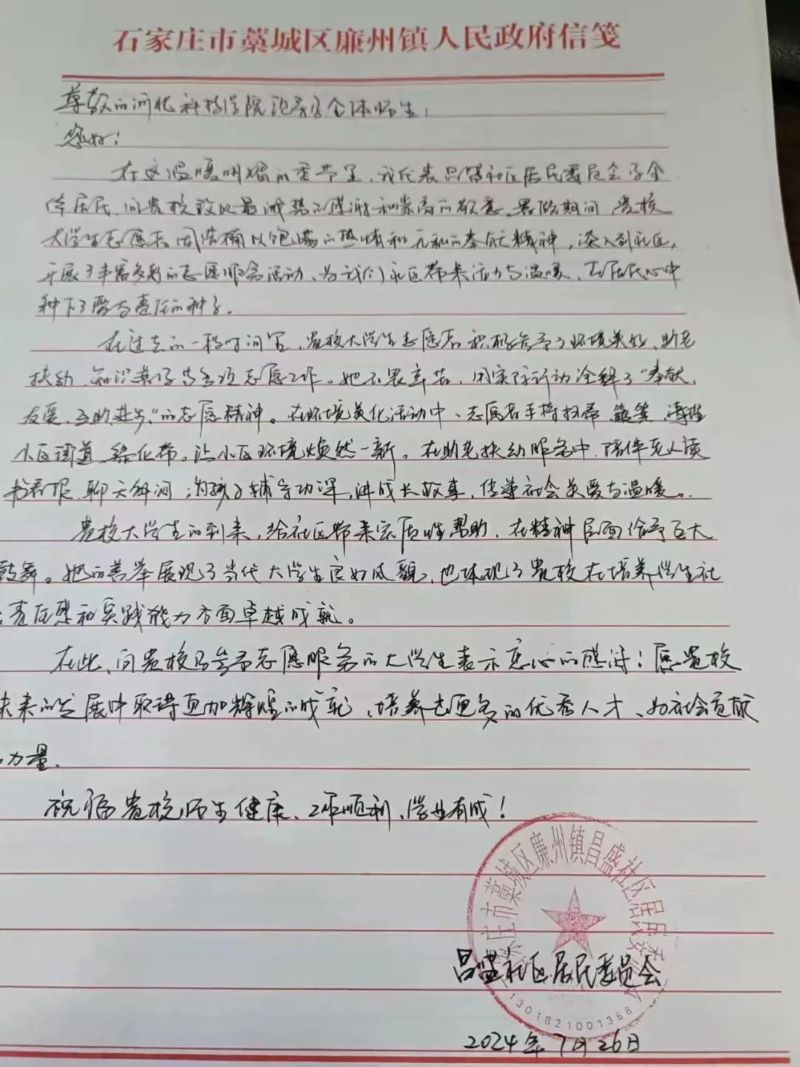 石家庄市藁城区廉州镇人民政府信笺
尊敬的河北科技学院全体师生：
您好！
在这温暖明媚的季节里，我代表昌盛社区居民委员会及全
体居民，向贵校致以最诚挚的感谢和崇高的敬意。暑假期间，贵校
大学生志愿者，以饱满的热情和无私的奉献精神，深入到社区，
开展了丰富多彩的志愿服务活动，为我们社区带来活力与温暖，在居民心中
种下了爱与责任的种子。
在过去的一段时间里，贵校大学生志愿者积极参与了环境美化，助老
扶幼，知识普及等各项志愿工作。她不畏辛苦，用实际行动诠释了“奉献，
友爱，互助进步”的志愿精神。在环境美化活动中，志愿者手持扫帚，簸箕，清理
小区街道，绿化带，让小区环境焕然一新。在助老扶幼服务中，陪伴老人读
书看报，聊天解闷，为孩子辅导功课，讲成长故事，传递社会关爱与温暖。
贵校大学生的到来，给社区带来实质性帮助，在精神层面给予巨大
鼓舞。她的善举展现了当代大学生良好风貌，也体现了贵校在培养学生社
会责任感和实践能力方面卓越成就。
在此，向贵校及参与志愿服务的大学生表示衷心的感谢！愿贵校
未来的发展中取得更加辉煌的成就，培养出更多的优秀人才，为社会贡献
力量。
祝福贵校师生健康、工作顺利、学业有成！
石家庄市藁城区廉州镇昌盛社区居民委员会
昌盛社区居民委员会
1301821001368
2024年7月26日